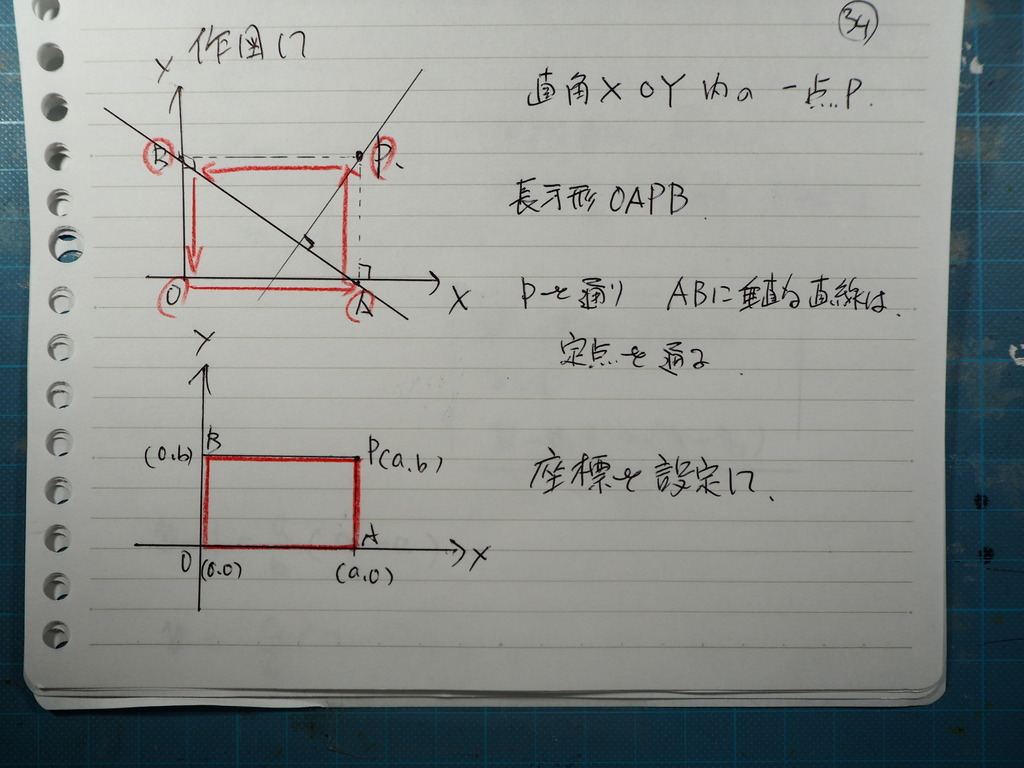 34
作図して
直角XOY内の一点P.
Y
B
P.
長方形OAPB
O
A
X
Pを通り ABに垂直な直線は、
定点を通る
Y
B
(0.b)
P(a.b)
座標を設定して、
A
X
O
(0.0)
(a.0)